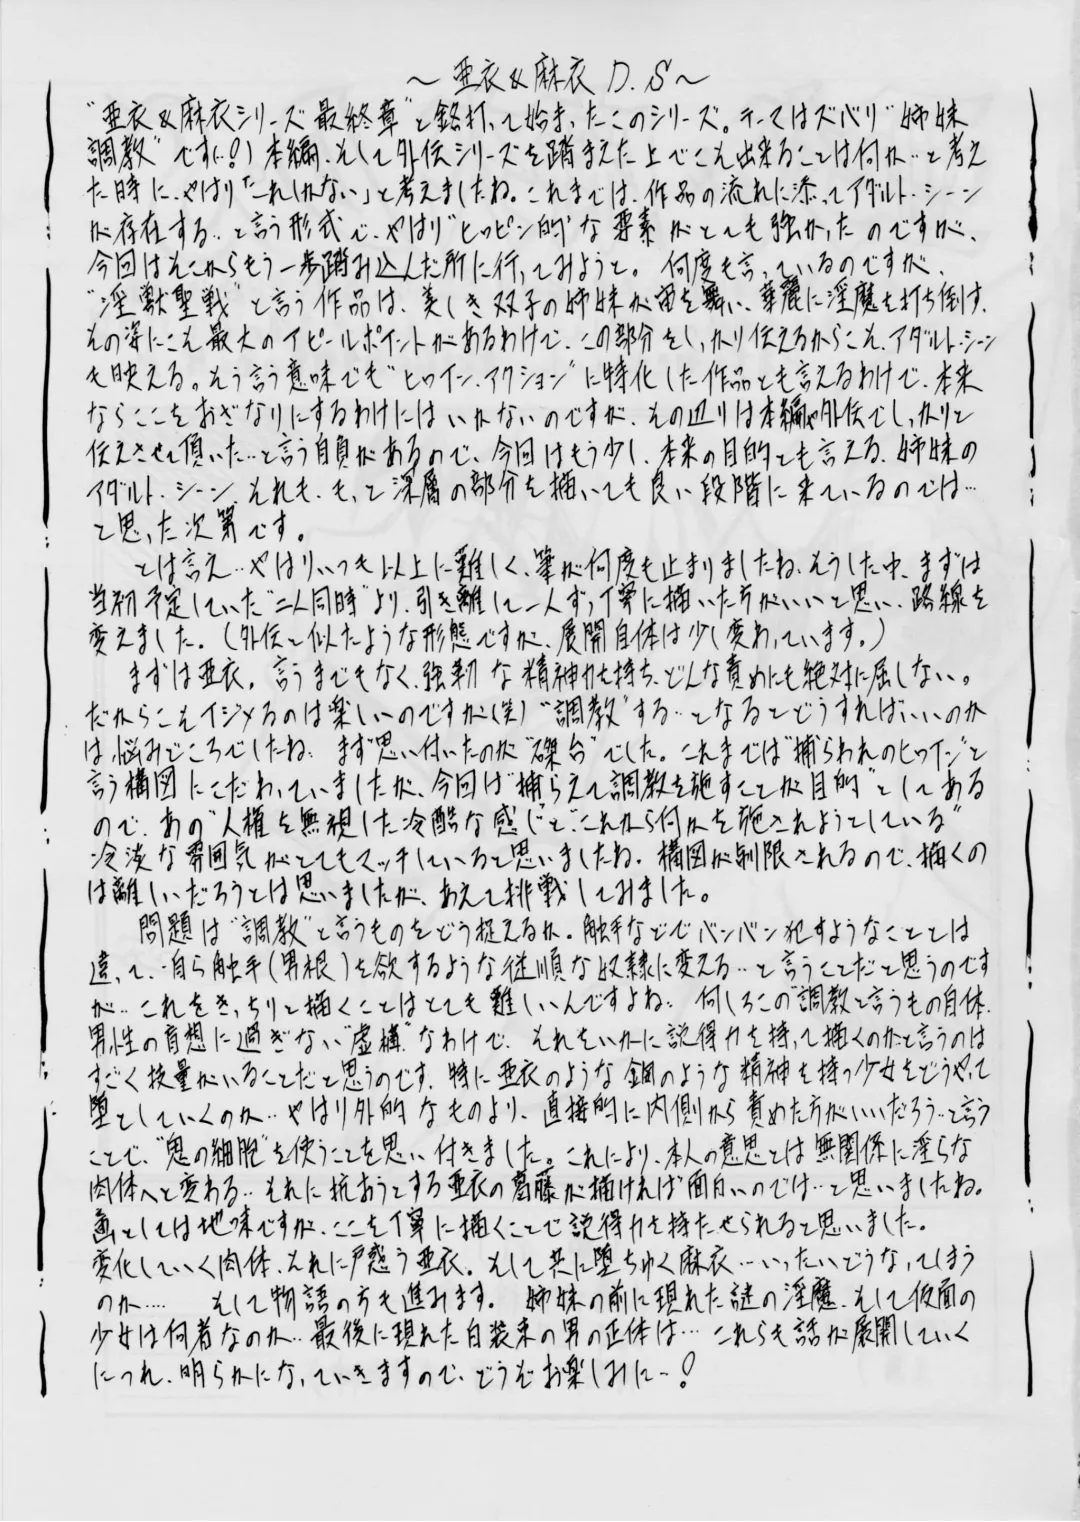 ～亜衣&麻衣 D.S～
"亜衣&麻衣シリーズ 最終章"と銘打って始まったこのシリーズ。テーマはズバリ"姉妹
調教"です(…!) 本編、そして外伝シリーズを踏まえた上でこそ出来ることは何か…と考え
た時に、やはり「これしかない」と考えましたね。これまでは、作品の流れに添ってアダルト・シーン
が存在する…と言う形式で、やはり"ヒロピン的"な要素がとても強かったのですが、
今回はそこからもう一歩踏み込んだ所に行ってみようと。何度も言っているのですが、
"淫獣聖戦"と言う作品は、美しき双子の姉妹が宙を舞い、華麗に淫魔を打ち倒す、
その姿にこそ最大のアピールポイントがあるわけで、この部分をしっかり伝えるからこそ、アダルト・シーン
も映える。そう言う意味でも"ヒロイン・アクション"に特化した作品とも言えるわけで、本来
ならここをおざなりにするわけにはいかないのですが、その辺りは本編や外伝でしっかりと
伝えさせて頂いた…と言う自負があるので、今回はもう少し、本来の目的とも言える、姉妹の
アダルト・シーン、それも、もっと深層の部分を描いても良い段階に来ているのでは…
と思った次第です。
とは言え…やはりいつも以上に難しく、筆が何度も止まりましたね。そうした中、まずは
当初予定していた"二人同時"より、引き離して一人ずつ丁寧に描いた方がいいと思い、路線を
変えました。(外伝と似たような形態ですが、展開自体は少し変わっています。)
まずは亜衣。言うまでもなく、強靭な精神力を持ち、どんな責めにも絶対に屈しない。
だからこそイジメるのは楽しいのですが(笑)"調教"する…となるとどうすればいいのか
は、悩みどころでしたね。まず思い付いたのが"磔台"でした。これまでは"捕らわれのヒロイン"と
言う構図にこだわっていましたが、今回は"捕らえて調教を施すことが目的"としてある
ので、あの"人権を無視した冷酷な感じ"と"これから何かを施されようとしている"
冷淡な雰囲気がとてもマッチしていると思いましたね。構図が制限されるので、描くの
は難しいだろうとは思いましたが、あえて挑戦してみました。
問題は"調教"と言うものをどう捉えるか。触手などでバンバン犯すようなこととは
違って、自ら触手(男根)を欲するような従順な奴隷に変える…と言うことだと思うのです
が…これをきっちりと描くことはとても難しいんですよね…何しろこの"調教"と言うもの自体、
男性の盲想に過ぎない"虚構"なわけで、それをいかに説得力を持って描くのかと言うのは
すごく技量がいることだと思うのです。特に亜衣のような鋼のような精神を持つ少女をどうやって
堕としていくのか…やはり外的なものより、直接的に内側から責めた方がいいだろう…と言う
ことで、"鬼の細胞"を使うことを思い付きました。これにより、本人の意思とは無関係に淫らな
肉体へと変わる…それに抗おうとする亜衣の葛藤が描ければ面白いのでは…と思いましたね。
画としては地味ですが、ここを丁寧に描くことで説得力を持たせられると思いました。
変化していく肉体、それに戸惑う亜衣。そして共に堕ちゆく麻衣…いったいどうなってしまう
のか…… そして物語の方も進みます。姉妹の前に現れた謎の淫魔、そして仮面の
少女は何者なのか…最後に現れた白装束の男の正体は… これらも話が展開していく
につれ、明らかになっていきますので、どうぞお楽しみに…!